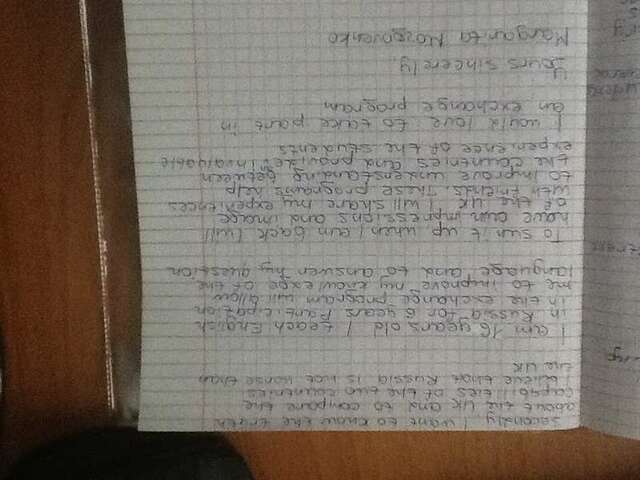 Secondly I want to know the truth
about the UK and to compare the
capabilities of the two countries
I believe that Russia is not worse than
the UK
I am 16 years old I teach English
in Russia for 6 years Participation
in the exchange program will allow
me to improve my knowlexge of the
language and to answer my question
To sum it up, when I am back I will
have own impressions and image
of the UK I will share my experiences
with friends. These programs help
to improve understanding between
the countries and provide invaluable
experience of the students
I would love to take part in
an exchange program
Yours sincerely
Margarita